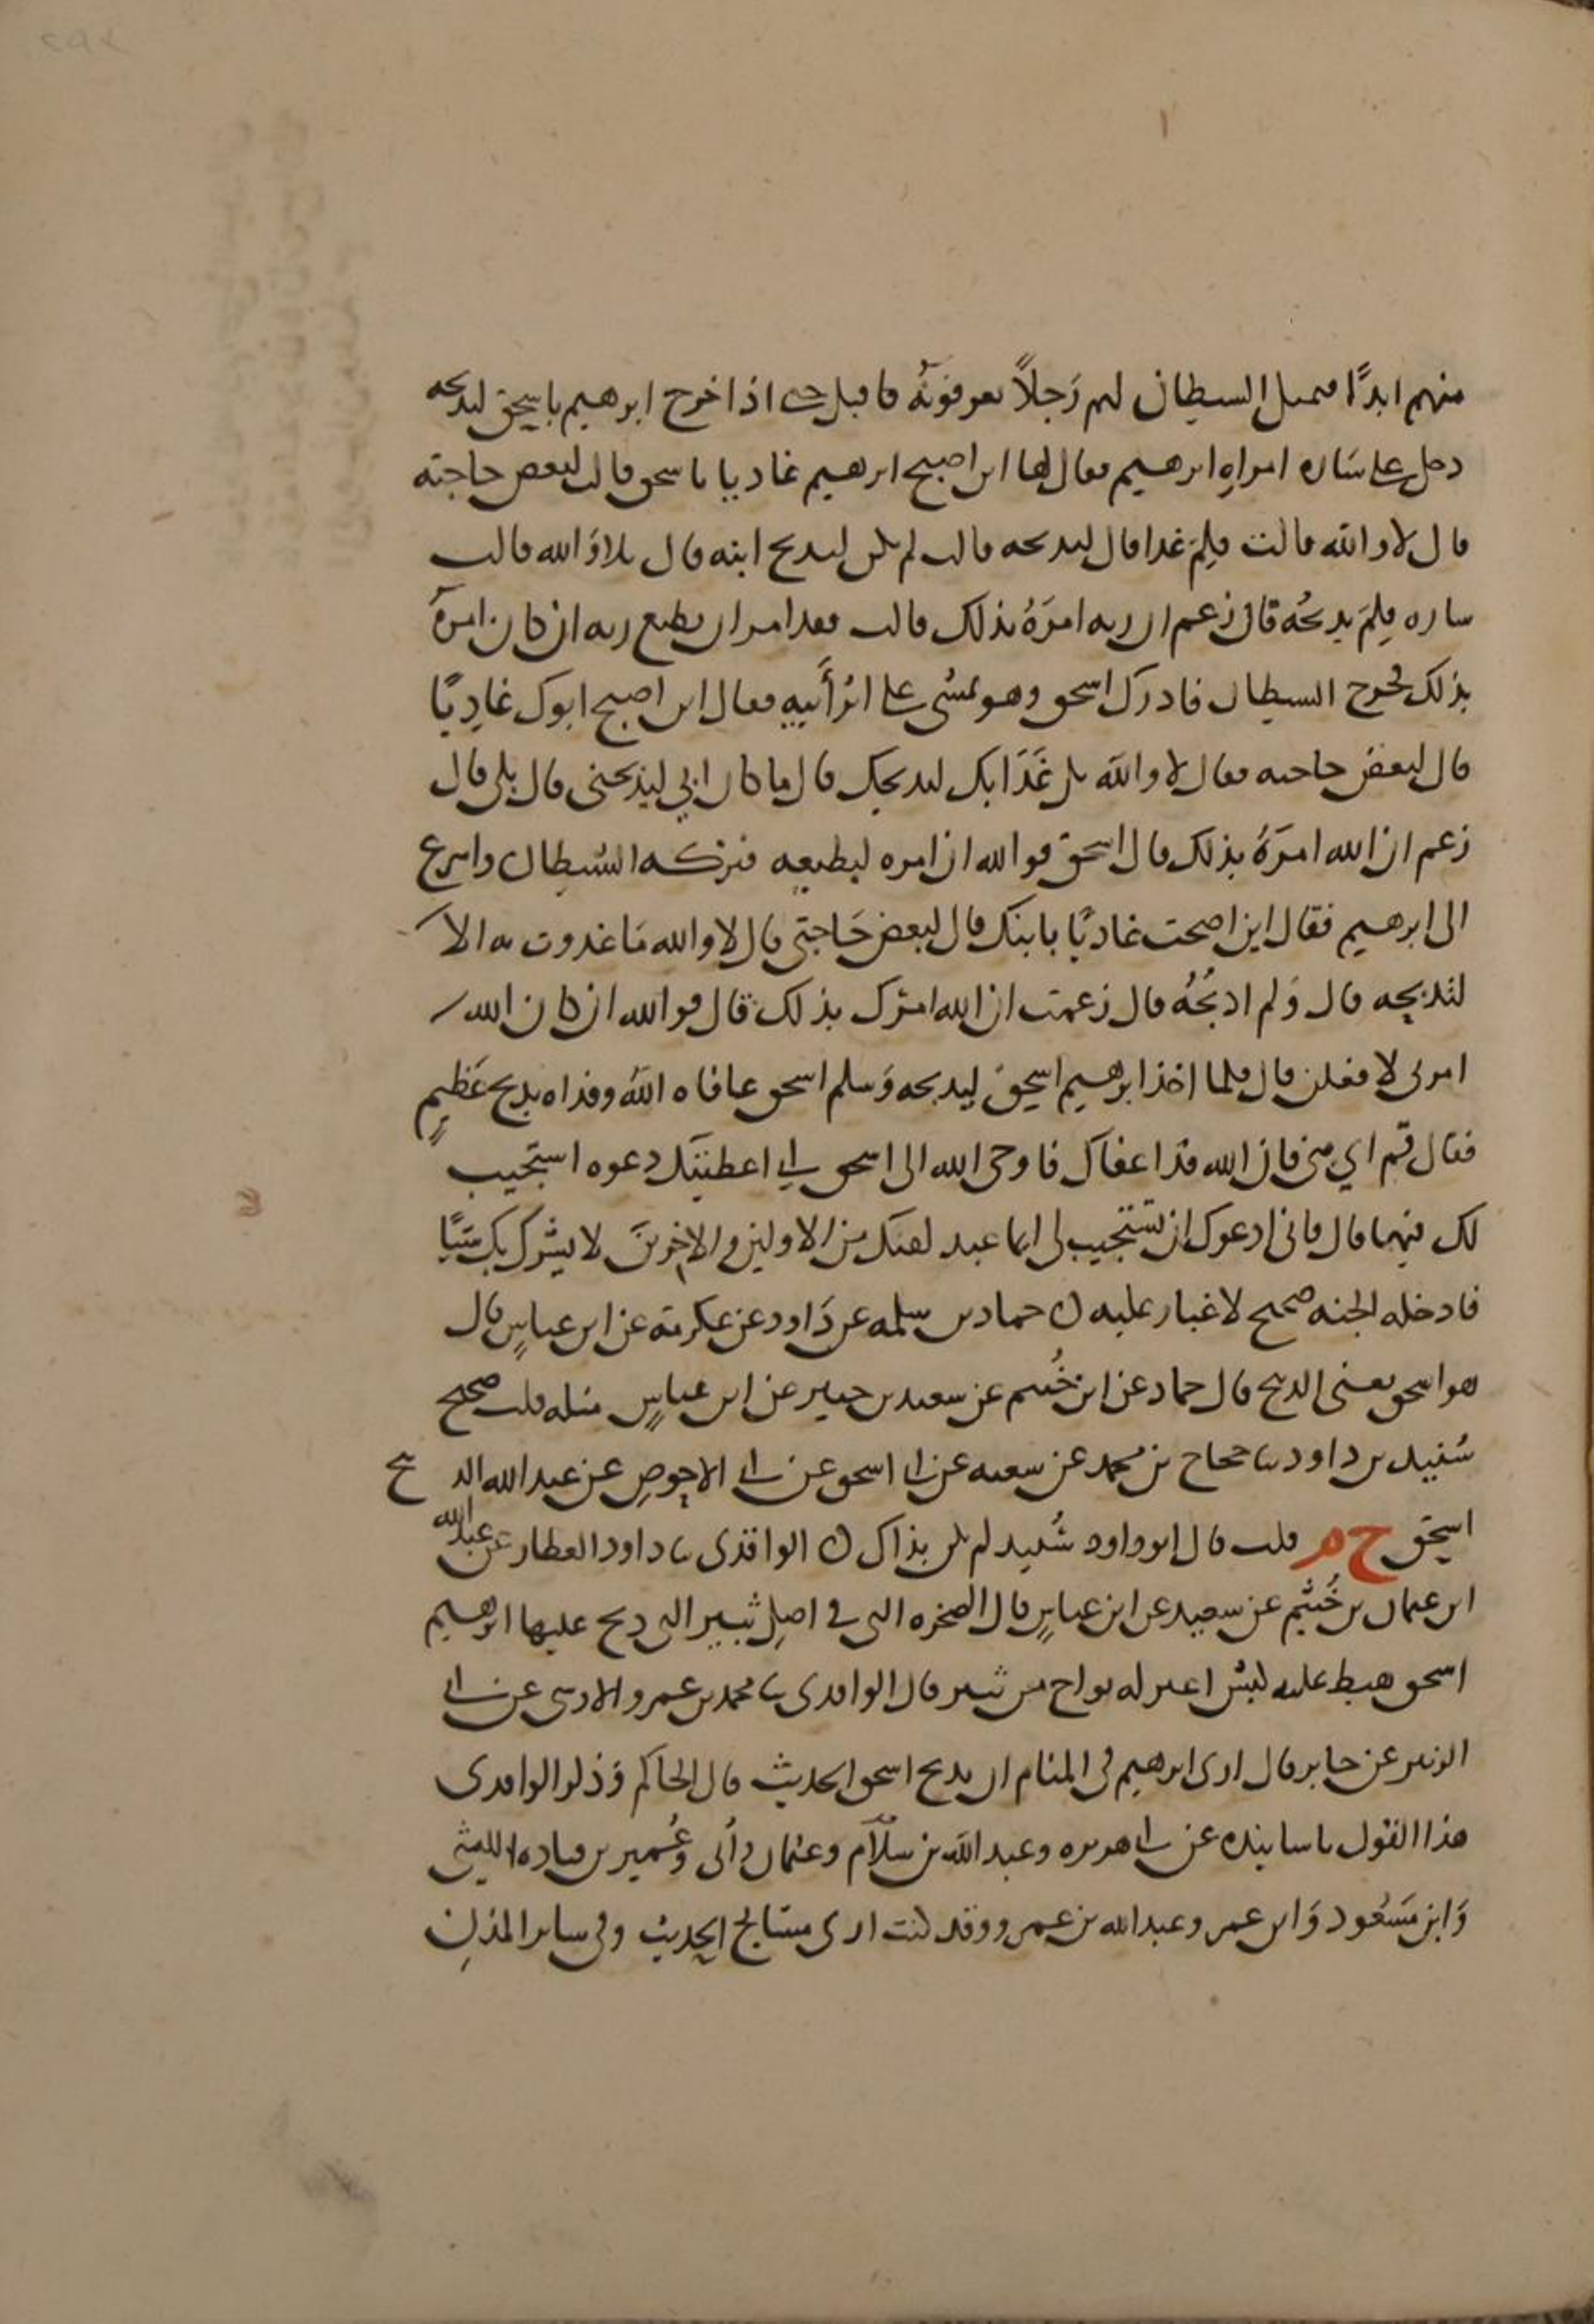 منهم ابدًا فتمثل الشيطان لهم رَجلاً يعرفونَهُ فاقبل حتى اذا خرج ابرهيم باسحق ليذبحه
دخل على سَاره امراهِ ابرهيم فقال لها اين اصبح ابرهيم غاديا باسحق قالت لبعض حاجته
قال لا والله قالت فلِمَ غدا قال ليذبحه قالت لم يكن ليذبح ابنه قال بلا وَالله قالت
ساره فلِمَ يذبحُه قال زعم ان ربه امرَهُ بذلك قالت فقد امر ان يطيع ربه ان كان امرهُ
بذلك فخرج الشيطان فادرك اسحق وهو يمشى على اثر أَبيهِ فقال اين اصبح ابوك غادِيًا
قال لبعض حاجته فقال لا والله بل غَدَا بك ليذبحك قال ما كان ابي ليذبحنى قال بلى قال
زعم ان الله امرَهُ بذلك قال اسحق فوالله ان امره ليطيعه فتركه الشيطان واسرع
الى ابرهيم فقال اين اصبحت غاديًا بابنك قال لبعض حَاجتى قال لا والله مَا غدوت به الا
لتذبحه قال وَلم اذبحُهُ قال زعمت ان الله امرَك بذلك قال فوالله ان كان الله
امرنى لافعلن قال فلما اخذ ابرهيم اسحق ليذبحه وَسلم اسحق عافاه اللهُ وفداه بذبح عَظيمٍ
فقال قم اي بنى فان الله قد اعفاك فاوحى الله الى اسحق اني اعطيتك دعوه استجيب
لك فيها قال فانى ادعوك ان تستجيب لى ايما عبد لقيك من الاولين والاخرين لا يشرك بك شيًا
فادخله الجنه صحيح لا غبار عليه ن حماد بن سلمه عن دَاود عن عكرمة عن ابن عباسٍ قال
هو اسحق يعنى الذبيح قال حماد عن ابن خُثيم عن سعيد بن جبير عن ابن عباسٍ مثله قلت صحيح
سُنيد بن داود ثنا حجاج بن محمد عن شعبه عن ابي اسحق عن ابي الاحوصِ عن عبد الله الذبيح
اسحق خ م قلت قال ابو داود سُنيد لم يكن بذاك ن الواقدى ثنا داود العطار عن عبد الله
ابن عثمان بن خُثيم عن سعيد عن ابن عباسٍ قال الصخره التى في اصلِ ثبير التى ذبح عليها ابرهيم
اسحق هبط عليه كبش اعين له ثواج من ثبير قال الواقدى ثنا محمد بن عمرو الاوسى عن ابي
الزبير عن جابر قال ارى ابرهيم فى المنام ان يذبح اسحق الحديث قال الحاكم وَذكر الواقدى
هذا القول باسانيده عن ابي هريره وعبد الله بن سلّام وعثمان وأُبى وعُمير بن قتاده الليثى
وَابن مَسعُود وَابن عمر وعبد الله بن عمرو وقد كنت ارى مشايخ الحديث وفى ساير المدنِ